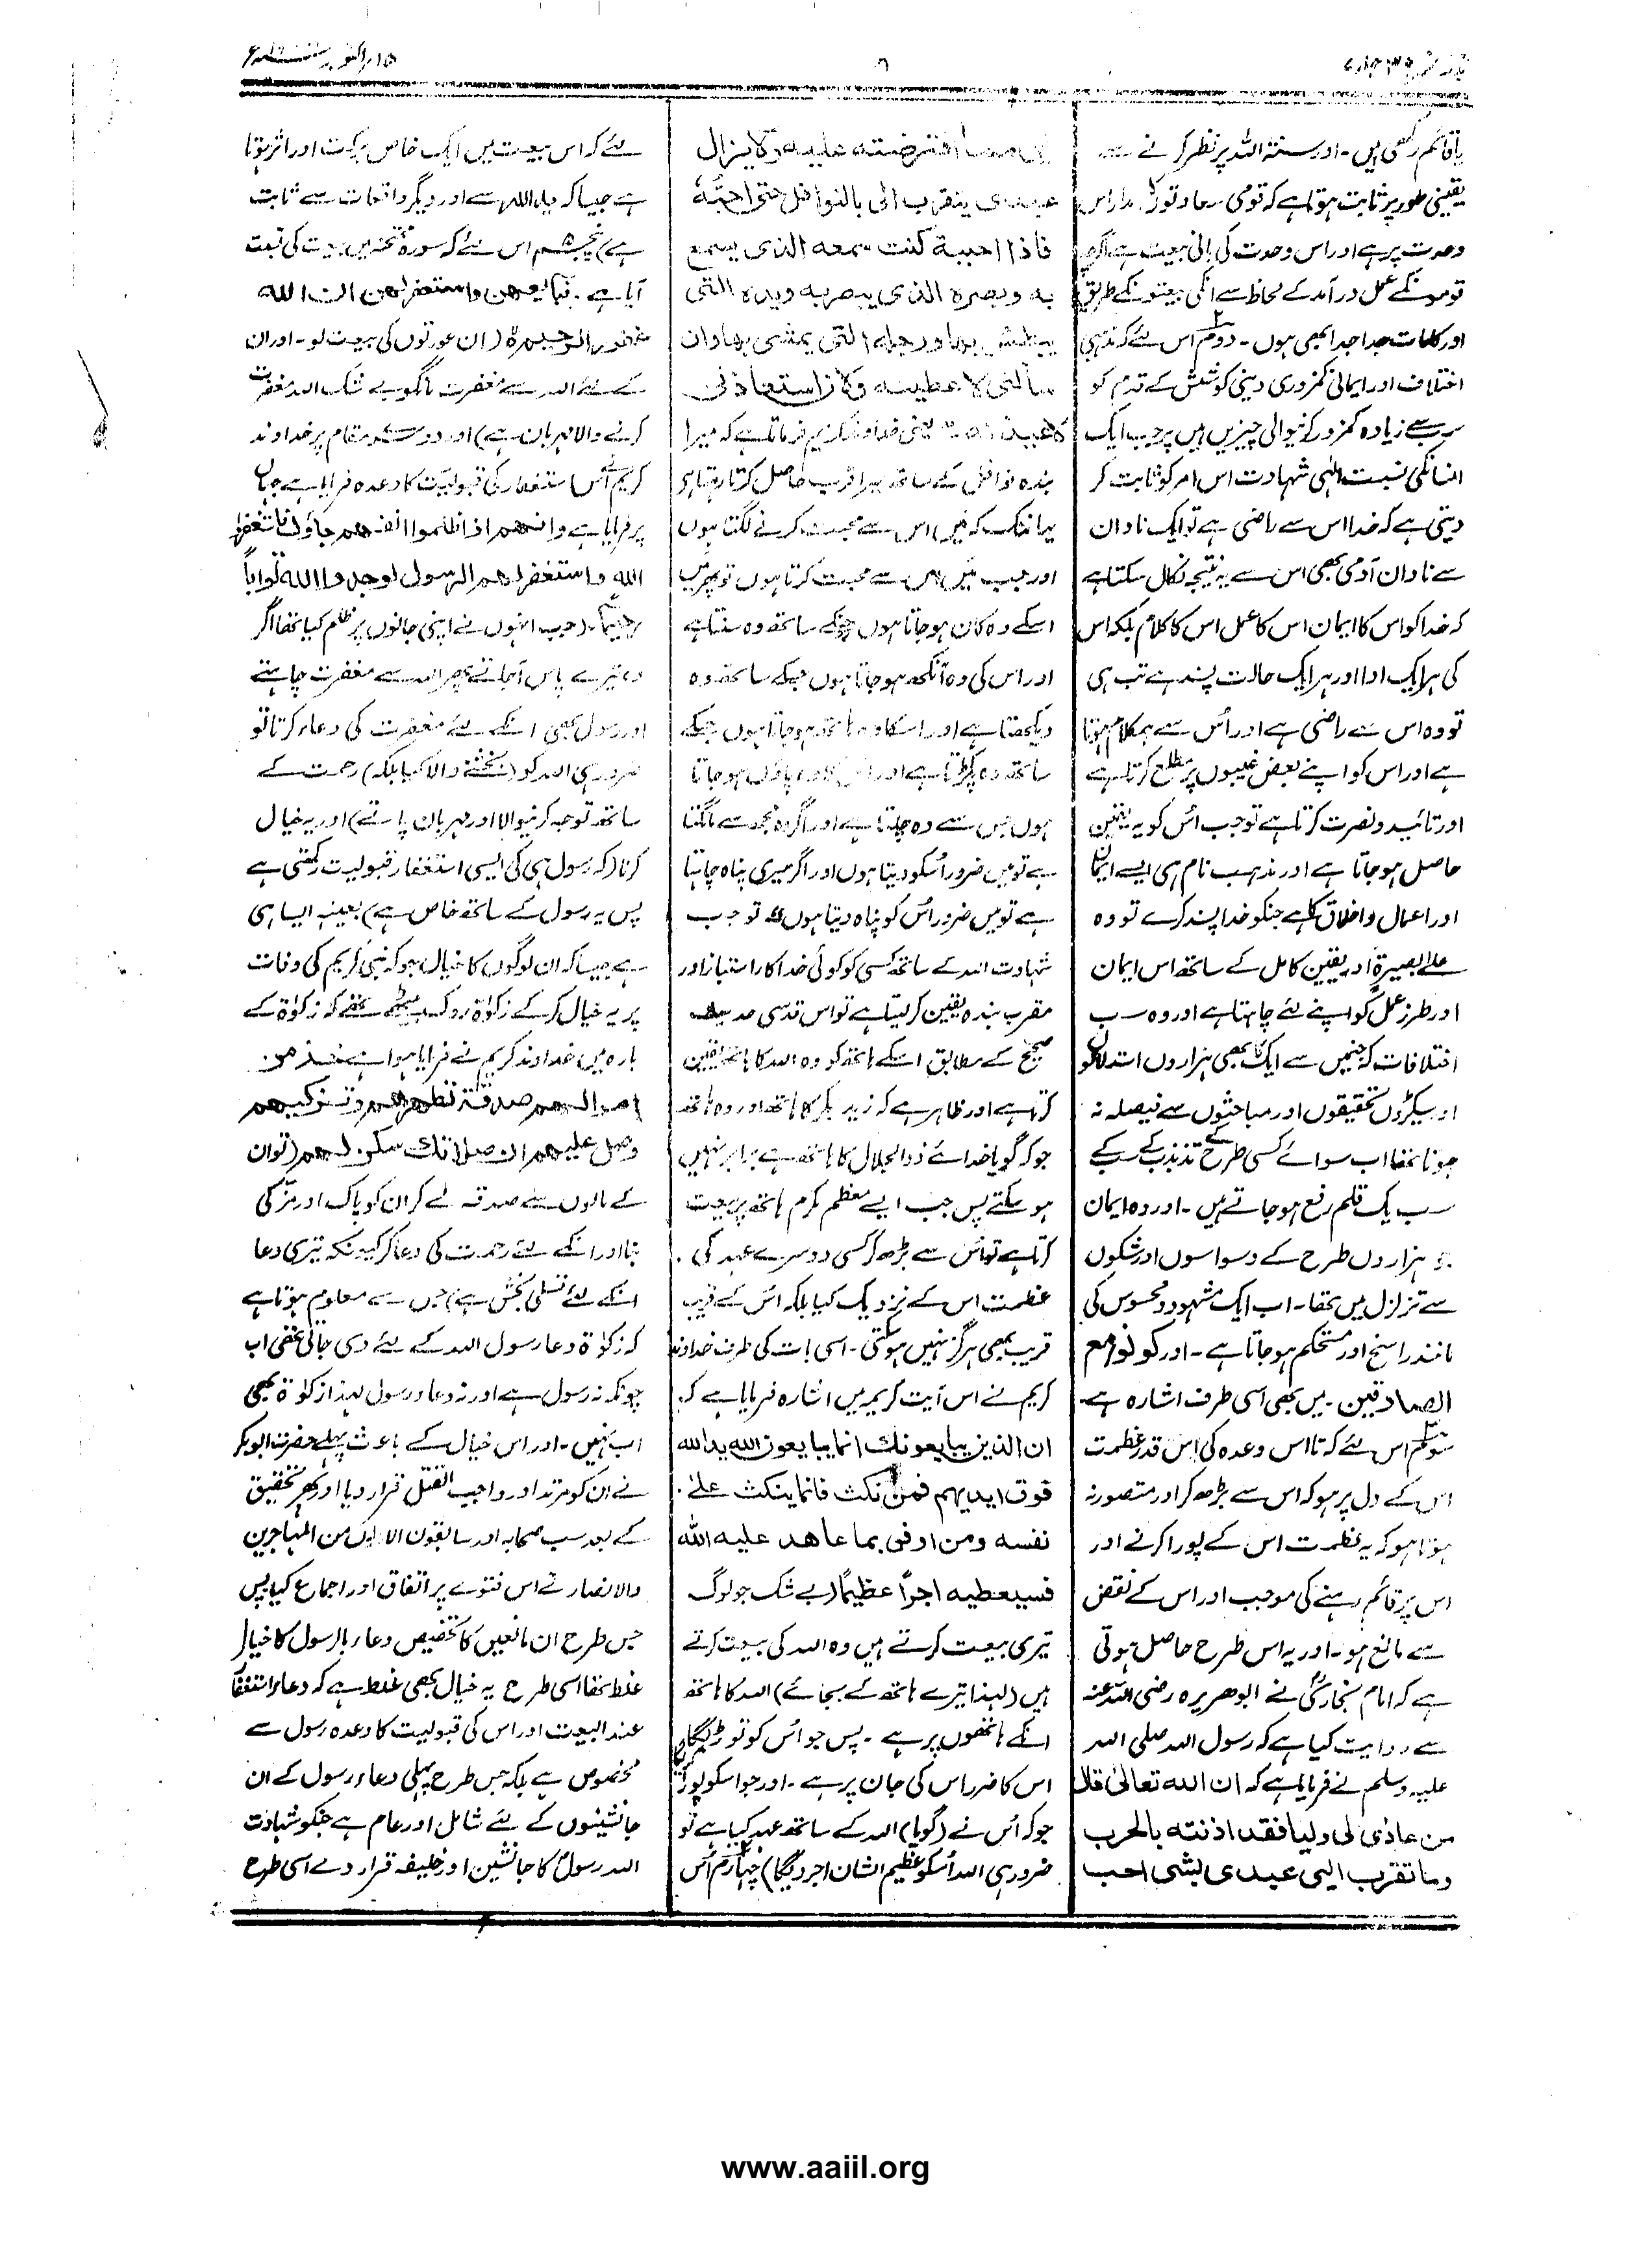 ۱۵ اکتوبر
۶
بدر نمبر ۳۹ جلد ۷
یا قائم رکھی ہیں ۔ اور سنۃ اللہ پر نظر کرنے سے
یقینی طور پر ثابت ہوتا ہے کہ قومی مدار اس
وحدت پر ہے اور اس وحدت کی بانی بیعت ہے اگرچہ
قومونکے عمل درآمد کے لحاظ سے انکی بیعتونکے طریق
اور کلمات جدا جدا بھی ہوں ۔ دوم اس لئے کہ مذہبی
اختلاف اور ایمانی کمزوری دینی کوشش کے قدم کو
سب سے زیادہ کمزور کرنیوالی چیزیں ہیں پر جب ایک
انسانکی نسبت الٰہی شہادت اس امر کو ثابت کر
دیتی ہے کہ خدا اس سے راضی ہے تو ایک نادان
سے نادان آدمی بھی اس سے یہ نتیجہ نکال سکتا ہے
کہ خدا کو اس کا ایمان اس کا عمل اس کا کلام بلکہ اس
کی ہر ایک ادا اور ہر ایک حالت پسند ہے تب ہی
تو وہ اس سے راضی ہے اور اُس سے ہمکلام ہوتا
ہے اور اس کو اپنے بعض غیبوں پر مطلع کرتا ہے
اور تائید و نصرت کرتا ہے تو جب اُس کو یہ یقین
حاصل ہو جاتا ہے اور مذہب نام ہی ایسے ایمان
اور اعمال و اخلاق کا ہے جنکو خدا پسند کرے تو وہ
علےٰ بصیرۃ اور یقین کامل کے ساتھ اس ایمان
اور طرز عمل کو اپنے لئے چاہتا ہے اور وہ سب
اختلافات کہ جنمیں سے ایک کا بھی ہزاروں استدلالوں
اور سیکڑوں تحقیقوں اور مباحثوں سے فیصلہ نہ
ہوتا تھا اب سوائے کسی طرح کے تذبذب کے سب کے
سب یک قلم رفع ہو جاتے ہیں ۔ اور وہ ایمان
جو ہزاروں طرح کے وسواسوں اور شکوں
سے تزلزل میں تھا ۔ اب ایک مشہود و محسوس کی
مانند راسخ اور مستحکم ہو جاتا ہے ۔ اور کونوا مع
الصادقین ۔ میں بھی اسی طرف اشارہ ہے ۔
سوم اس لئے کہ تا اس وعدہ کی اس قدر عظمت
اس کے دل پر ہو کہ اس سے بڑھ کر اور متصور نہ
ہو تا ہو کہ یہ عظمت اس کے پورا کرنے اور
اس پر قائم رہنے کی موجب اور اس کے نقض
سے مانع ہو ۔ اور یہ اس طرح حاصل ہوتی
ہے کہ امام بخاریؒ نے ابو ھریرہ رضی اللہ عنہ
سے روایت کیا ہے کہ رسول اللہ صلی اللہ
علیہ وسلم نے فرمایا ہے کہ ان اللہ تعالیٰ قال
من عاذی لی ولیا فقد اذنتہ بالحرب
وما تقرب الیی عبدی بشی احب
الی مما افترضتہ علیہ ولا یزال
عبدی یتقرب الی بالنوافل حتی احبہ
فاذا احببۃ کنت سمعہ الذی یسمع
بہ وبصرہ الذی یبصر بہ ویدہ التی
یبطش بہا ورجلہ التی یمشی بہا وان
سألنی لا عطینہ ولان استعاذنی
لاعیذنہ یعنی خداوند کریم فرماتا ہے کہ میرا
بندہ نوافل کے ساتھ میرا قرب حاصل کرتا رہتا ہے
یہانتک کہ میں اس سے محبت کرنے لگتا ہوں
اور جب میں اس سے محبت کرتا ہوں تو پھر میں
اسکے وہ کان ہو جاتا ہوں جنکے ساتھ وہ سنتا ہے
اور اس کی وہ آنکھ ہو جاتا ہوں جسکے ساتھ وہ
دیکھتا ہے اور اسکا وہ ہاتھ ہو جاتا ہوں جسکے
ساتھ وہ پکڑتا ہے اور اس کا وہ پاؤں ہو جاتا
ہوں جس سے وہ چلتا ہے اور اگر وہ مجھ سے مانگتا
ہے تو میں ضرور اُسکو دیتا ہوں اور اگر میری پناہ چاہتا
ہے تو میں ضرور اُس کو پناہ دیتا ہوں تو جب
شہادت اللہ کے ساتھ کسی کو کوئی خدا کا راستباز اور
مقرب بندہ یقین کر لیتا ہے تو اس قدسی حدیث
صحیح کے مطابق اسکے ہاتھ کو وہ اللہ کا ہاتھ یقین
کرتا ہے اور ظاہر ہے کہ زید بکر کا ہاتھ اور وہ ہاتھ
جو کہ گویا خدائے ذو الجلال کا ہاتھ ہے برابر نہیں
ہو سکتے پس جب ایسے معظم کرم ہاتھ پر بیعت
کرتا ہے تو اس سے بڑھ کر کسی دوسرے عہد کی
عظمت اس کے نزدیک کیا بلکہ اُس کے قریب
قریب بھی ہرگز نہیں ہو سکتی ۔ اسی بات کی طرف خداوند
کریم نے اس آیت کریمہ میں اشارہ فرمایا ہے کہ
ان الذین یبایعونک انما یبایعون اللہ ید اللہ
فوق ایدیہم فمن نکث فانما ینکث علیٰ
نفسہ ومن اوفی بما عاہد علیہ اللہ
فسیعطیہ اجراً عظیماً (بے شک جو لوگ
تیری بیعت کرتے ہیں وہ اللہ کی بیعت کرتے
ہیں (لہذا تیرے ہاتھ کے بجائے) اللہ کا ہاتھ
انکے ہاتھوں پر ہے ۔ پس جو اُس کو توڑیگا
اس کا ضرر اس کی جان پر ہے ۔ اور جو اسکو پورا کریگا
جو کہ اُس نے (گویا) اللہ کے ساتھ عہد کیا ہے تو
ضرور ہی اللہ اُسکو عظیم الشان اجر دیگا) چہارم اُس
لئے کہ اس بیعت میں ایک خاص برکت اور اثر ہوتا
ہے جیسا کہ ید اللہ سے اور دیگر واقعات سے ثابت
ہے) پنجم اس لئے کہ سورۃ ممتحنہ میں بیعت کی نسبت
آیا ہے ۔ فبایعہن واستغفر لہن اللہ ان اللہ
غفور الرحیمۃ (ان عورتوں کی بیعت لو ۔ اور ان
کے لئے اللہ سے مغفرت مانگو بے شک اللہ مغفرت
کرنے والا مہربان ہے) اور دوسرے مقام پر خداوند
کریم نے اُس استغفار کی قبولیت کا وعدہ فرمایا ہے جہاں
پر فرمایا ہے ولو انہم اذ ظلموا انفسہم جاؤک فاستغفروا
اللہ واستغفر لہم الرسول لوجدوا اللہ تواباً
رحیماً ۔ (جب انہوں نے اپنی جانوں پر ظلم کیا تھا اگر
وہ تیرے پاس آجاتے پھر اللہ سے مغفرت چاہتے
اور رسول بھی انکے لئے مغفرت کی دعاء کرتا تو
ضرور ہی اللہ کو (بخشنے والا کیا بلکہ) رحمت کے
ساتھ توجہ کرنیوالا اور مہربان پاتے) اور یہ خیال
کرنا (کہ رسول ہی کی ایسی استغفار قبولیت رکھتی ہے
پس یہ رسول کے ساتھ خاص ہے) بعینہ ایسا ہی
ہے جیسا کہ ان لوگوں کا خیال ہو کہ نبی کریم کی وفات
پر یہ خیال کر کے زکوٰۃ روک بیٹھے تھے کہ زکوٰۃ کے
بارہ میں خداوند کریم نے فرمایا ہوا ہے خذ من
اموالہم صدقۃ تطہرہم وتزکیہم
وصل علیہم ان صلاتک سکن لہم (تو ان
کے مالوں سے صدقہ لے کر ان کو پاک اور مزکی
بنا اور انکے لئے رحمت کی دعا کر کیونکہ تیری دعا
انکے لئے تسلی بخش ہے) جس سے معلوم ہوتا ہے
کہ زکوٰۃ دعا رسول اللہ کے لئے دی جاتی تھی اب
چونکہ نہ رسول ہے اور نہ دعاء رسول لہذا زکوٰۃ بھی
اب نہیں ۔ اور اس خیال کے باعث پہلے حضرت ابوبکر
نے ان کو مرتد اور واجب القتل قرار دیا اور پھر تحقیق
کے بعد سب صحابہ اور سابقون الاولون من المہاجرین
والانصار نے اس فتوے پر اتفاق اور اجماع کیا پس
جس طرح ان مانعین کا تخصیص دعاء بالرسول کا خیال
غلط تھا اسی طرح یہ خیال بھی غلط ہے کہ دعاء استغفار
عند البیعت اور اس کی قبولیت کا وعدہ رسول سے
مخصوص ہے بلکہ جس طرح پہلی دعاء رسول کے ان
جانشینوں کے لئے شامل اور عام ہے جنکو شہادت
اللہ رسول کا جانشین اور خلیفہ قرار دے اسی طرح
www.aaiil.org